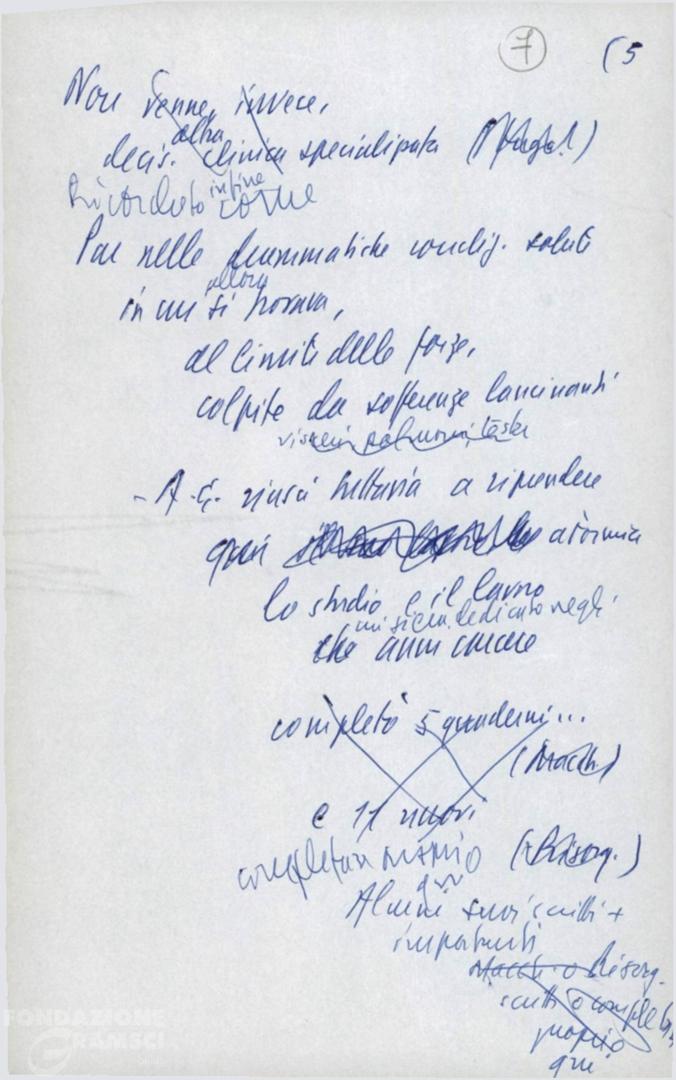 7 (5
Non venne, invece,
altra
decis. clinica specializzata
Ricordato infine come
Pur nelle drammatiche condiz. salute
allora
in cui si trovava,
al limite delle forze,
colpito da sofferenze lancinanti
- A. G. riuscì tuttavia a riprendere
quei a Formia
lo studio e il lavoro
cui si era dedicato negli
che anni carcere
completò 5 quaderni...
(Macch.)
e 11 nuovi
(Risorg.)
qui
Alcuni suoi scritti +
importanti
Macch. o Risorg.
scritti o completati
proprio
qui
FONDAZIONE
GRAMSCI